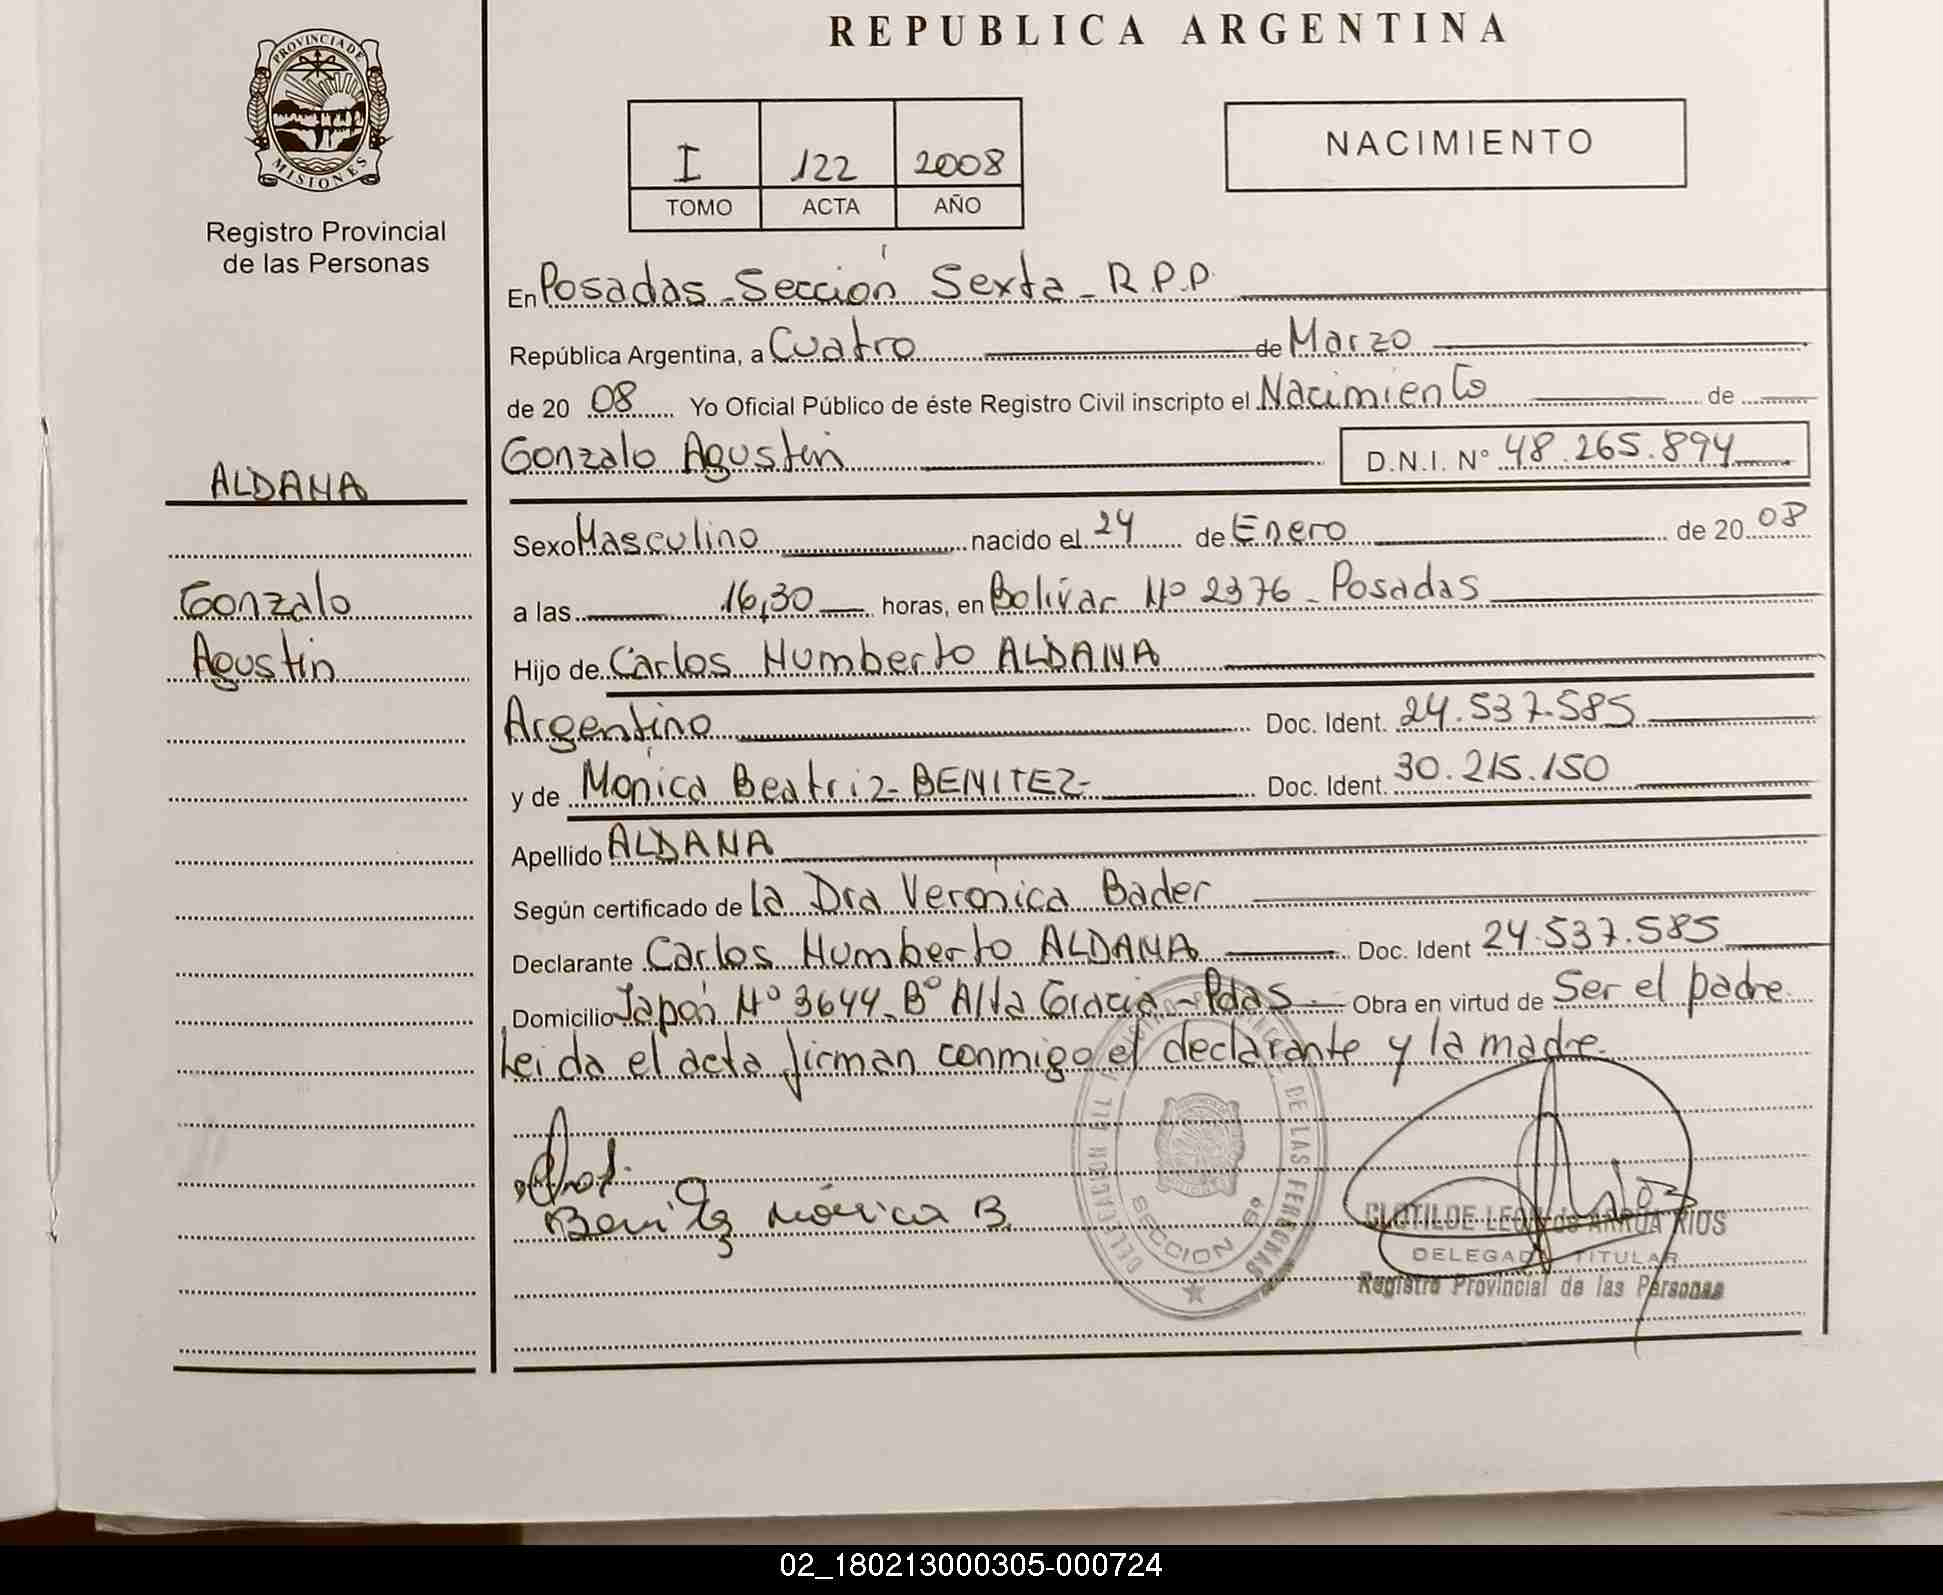 REPUBLICA ARGENTINA
PROVINCIA DE
MISIONES
Registro Provincial
de las Personas
I 122 2008
TOMO ACTA AÑO
NACIMIENTO
En Posadas - Sección Sexta - R.P.P.
República Argentina, a Cuatro de Marzo
de 20 08 Yo Oficial Público de éste Registro Civil inscripto el Nacimiento de
Gonzalo Agustín D.N.I. N° 48.265.894
ALDANA
Gonzalo
Agustín
Sexo Masculino nacido el 24 de Enero de 20 08
a las 16,30 horas, en Bolívar Nº 2376 - Posadas
Hijo de Carlos Humberto ALDANA
Argentino Doc. Ident. 24.537.585
y de Mónica Beatriz - BENITEZ - Doc. Ident. 30.215.150
Apellido ALDANA
Según certificado de la Dra Verónica Bader
Declarante Carlos Humberto ALDANA Doc. Ident 24.537.585
Domicilio Japón Nº 3644 - Bº Alta Gracia - Pdas. Obra en virtud de Ser el padre.
Leida el acta firman conmigo el declarante y la madre.
Benitez Mónica B.
DE LAS PERSONAS
SECCION 6º
CLOTILDE ARRUA RIOS
DELEGADA TITULAR
Registro Provincial de las Personas
02_180213000305-000724